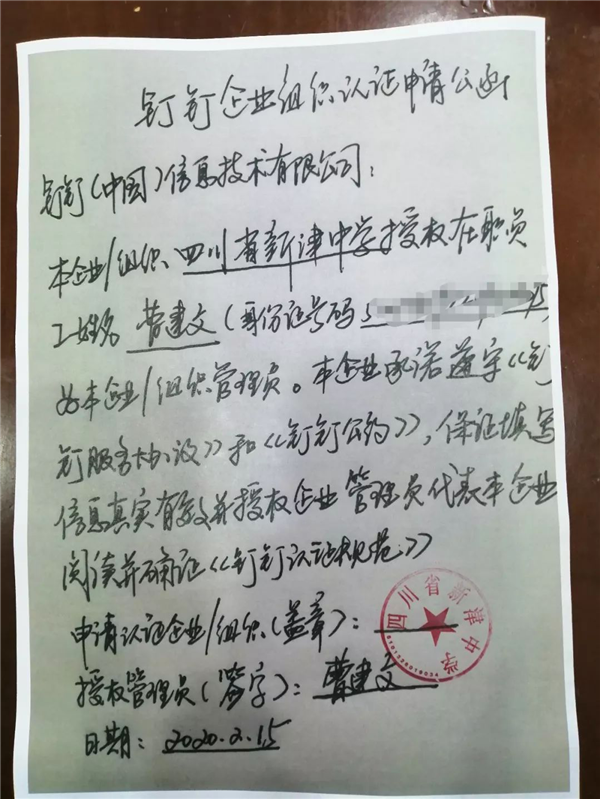 钉钉企业组织认证申请公函
钉钉(中国)信息技术有限公司:
本企业/组织 四川省新津中学授权在职员
工姓名 曹建文(身份证号码
为本企业/组织管理员。本企业承诺遵守《钉
钉服务协议》和《钉钉公约》,保证填写
信息真实有效并授权企业管理员代表本企业
阅读并确证《钉钉认证规范》
申请认证企业/组织(盖章):
四川省新津中学
授权管理员(签字):曹建文
日期:2020.2.15